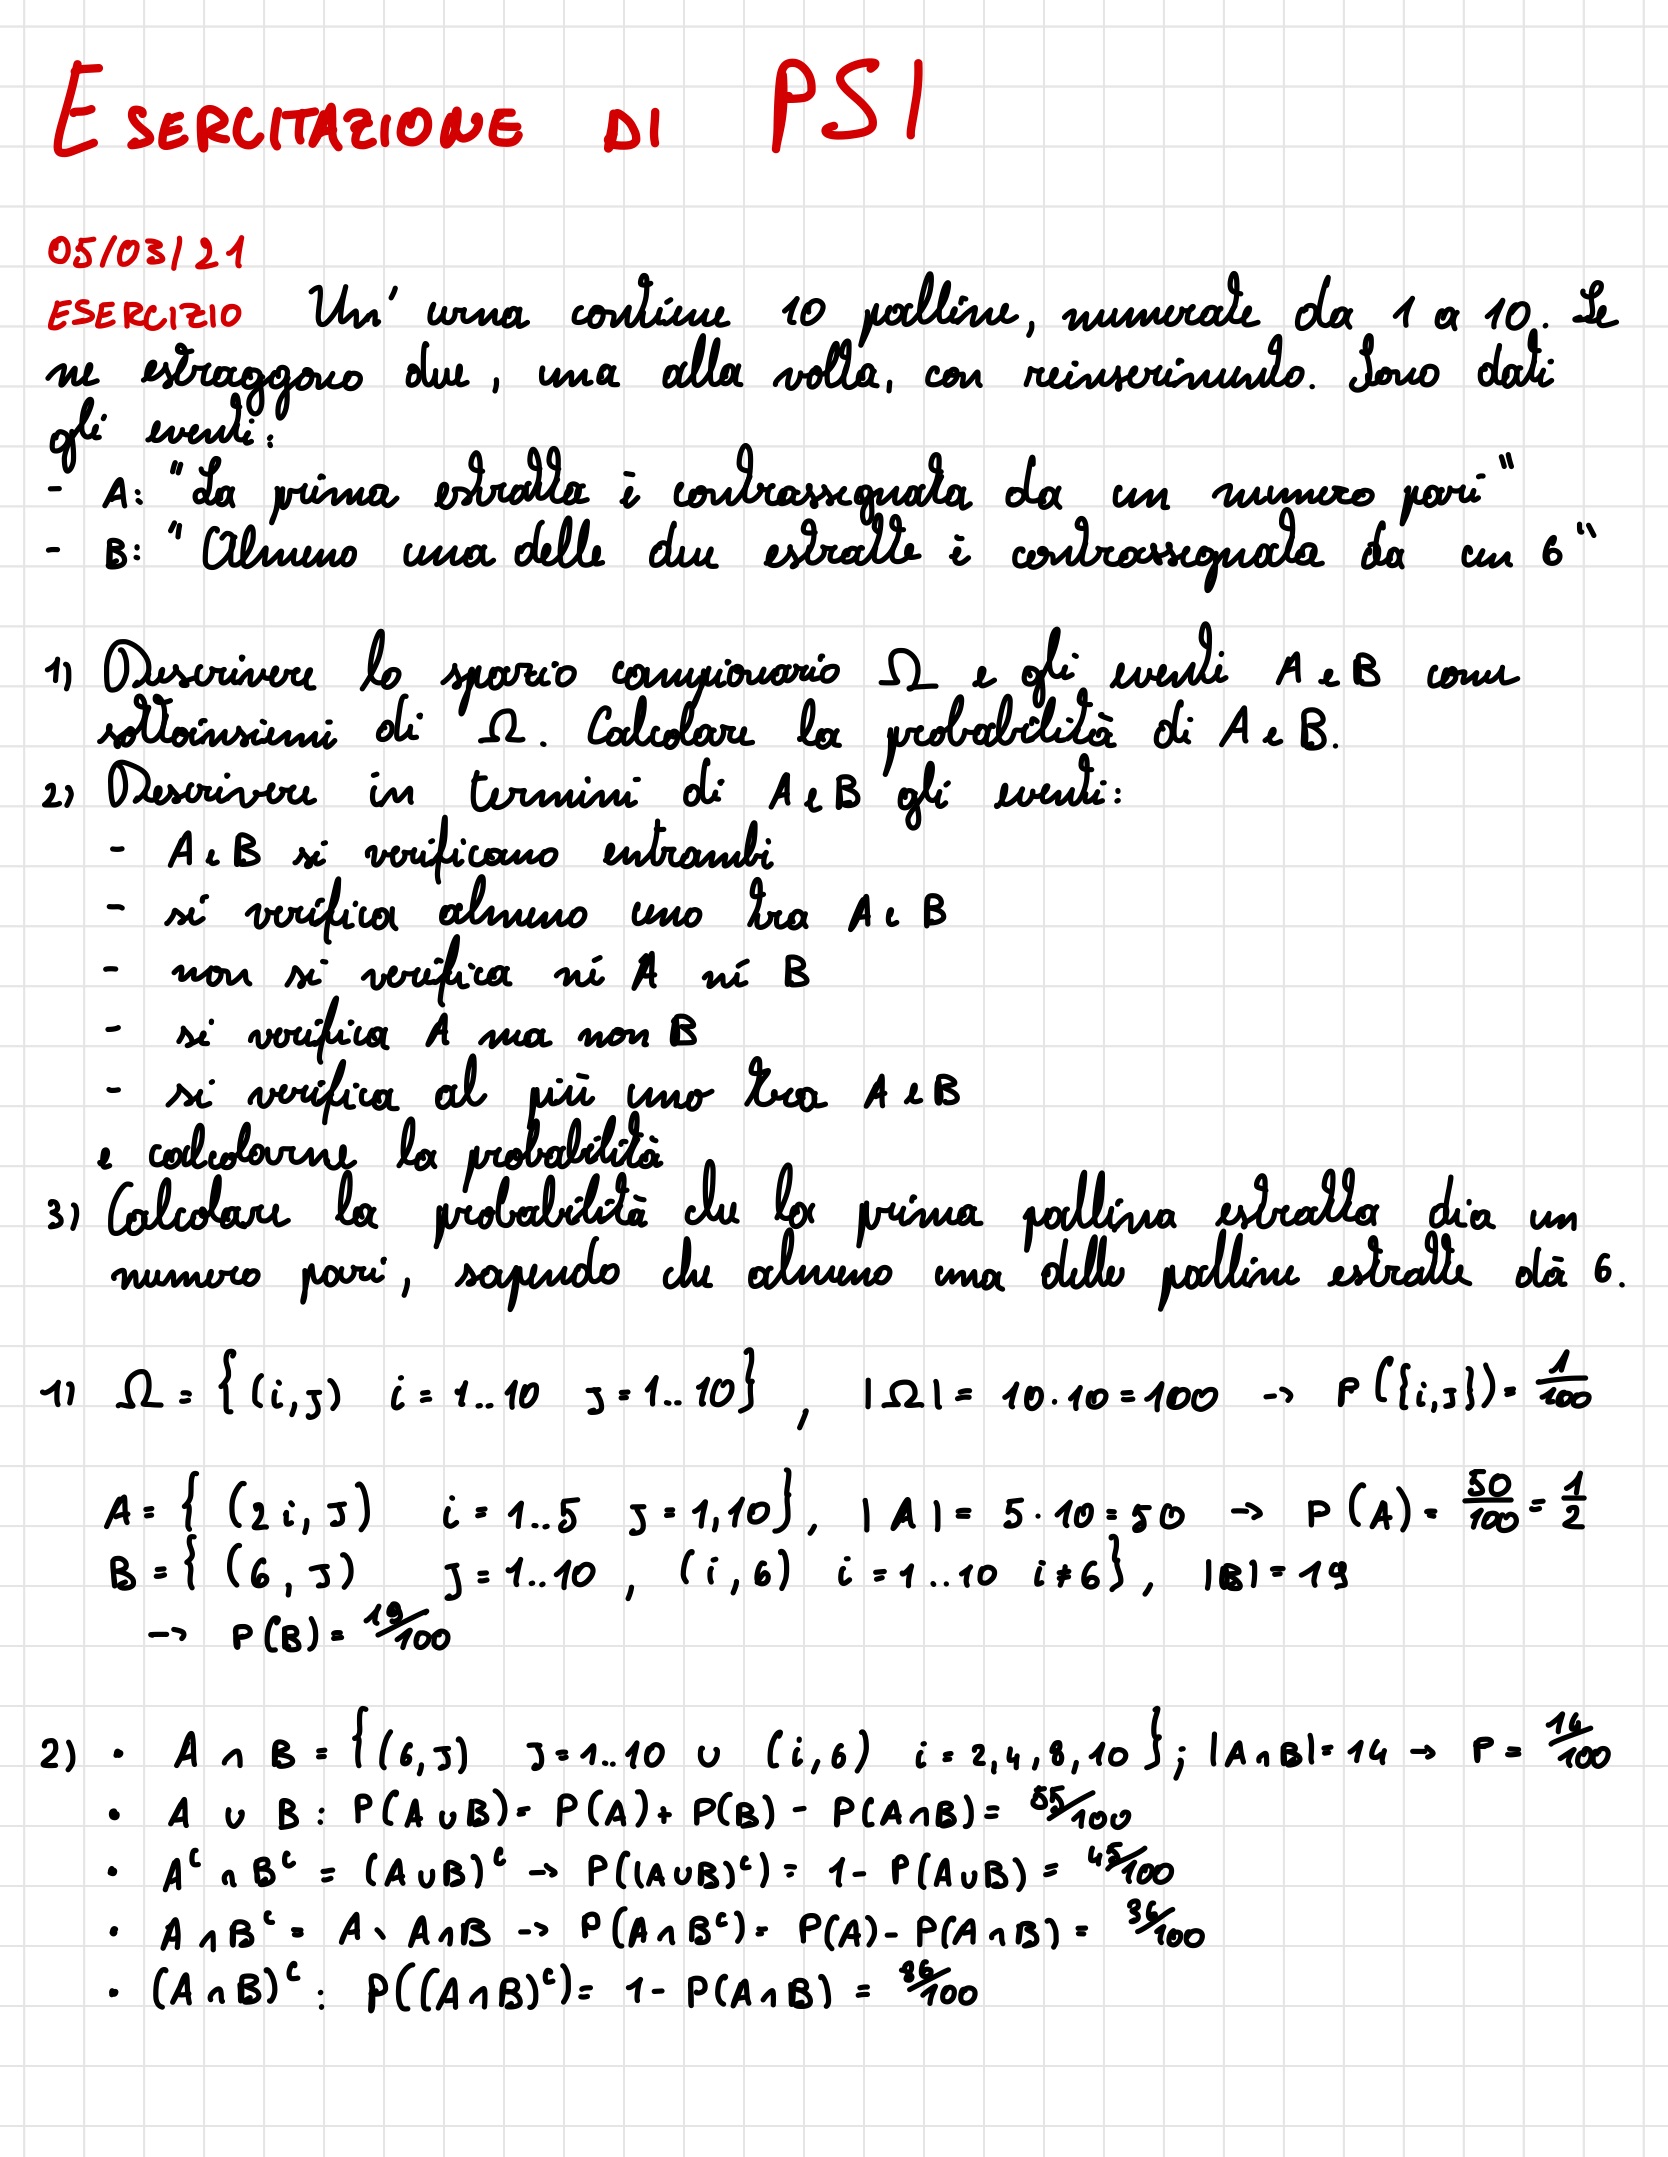 ESERCITAZIONE DI PSI
05/03/21
ESERCIZIO Un' urna contiene 10 palline, numerate da 1 a 10. Se
ne estraggono due, una alla volta, con reinserimento. Sono dati
gli eventi:
- A: "La prima estratta è contrassegnata da un numero pari"
- B: "Almeno una delle due estratte è contrassegnata da un 6"
1) Descrivere lo spazio campionario Ω e gli eventi A e B come
sottoinsiemi di Ω. Calcolare la probabilità di A e B.
2) Descrivere in termini di A e B gli eventi:
- A e B si verificano entrambi
- si verifica almeno uno tra A e B
- non si verifica né A né B
- si verifica A ma non B
- si verifica al più uno tra A e B
e calcolarne la probabilità
3) Calcolare la probabilità che la prima pallina estratta dia un
numero pari, sapendo che almeno una delle palline estratte dà 6.
1) Ω = {(i,J) i = 1..10 J = 1..10} , |Ω| = 10·10 = 100 → P({i,J}) = 1/100
A = { (2i, J) i = 1..5 J = 1,10}, |A| = 5·10 = 50 → P(A) = 50/100 = 1/2
B = { (6, J) J = 1..10 , (i,6) i = 1..10 i≠6}, |B| = 19
→ P(B) = 19/100
2) • A ∩ B = {(6,J) J = 1..10 ∪ (i,6) i = 2,4,8,10 }; |A∩B| = 14 → P = 14/100
• A ∪ B : P(A∪B) = P(A) + P(B) - P(A∩B) = 55/100
• Aᶜ ∩ Bᶜ = (A∪B)ᶜ → P((A∪B)ᶜ) = 1 - P(A∪B) = 45/100
• A∩Bᶜ = A \ A∩B → P(A∩Bᶜ) = P(A) - P(A∩B) = 36/100
• (A∩B)ᶜ : P((A∩B)ᶜ) = 1 - P(A∩B) = 86/100